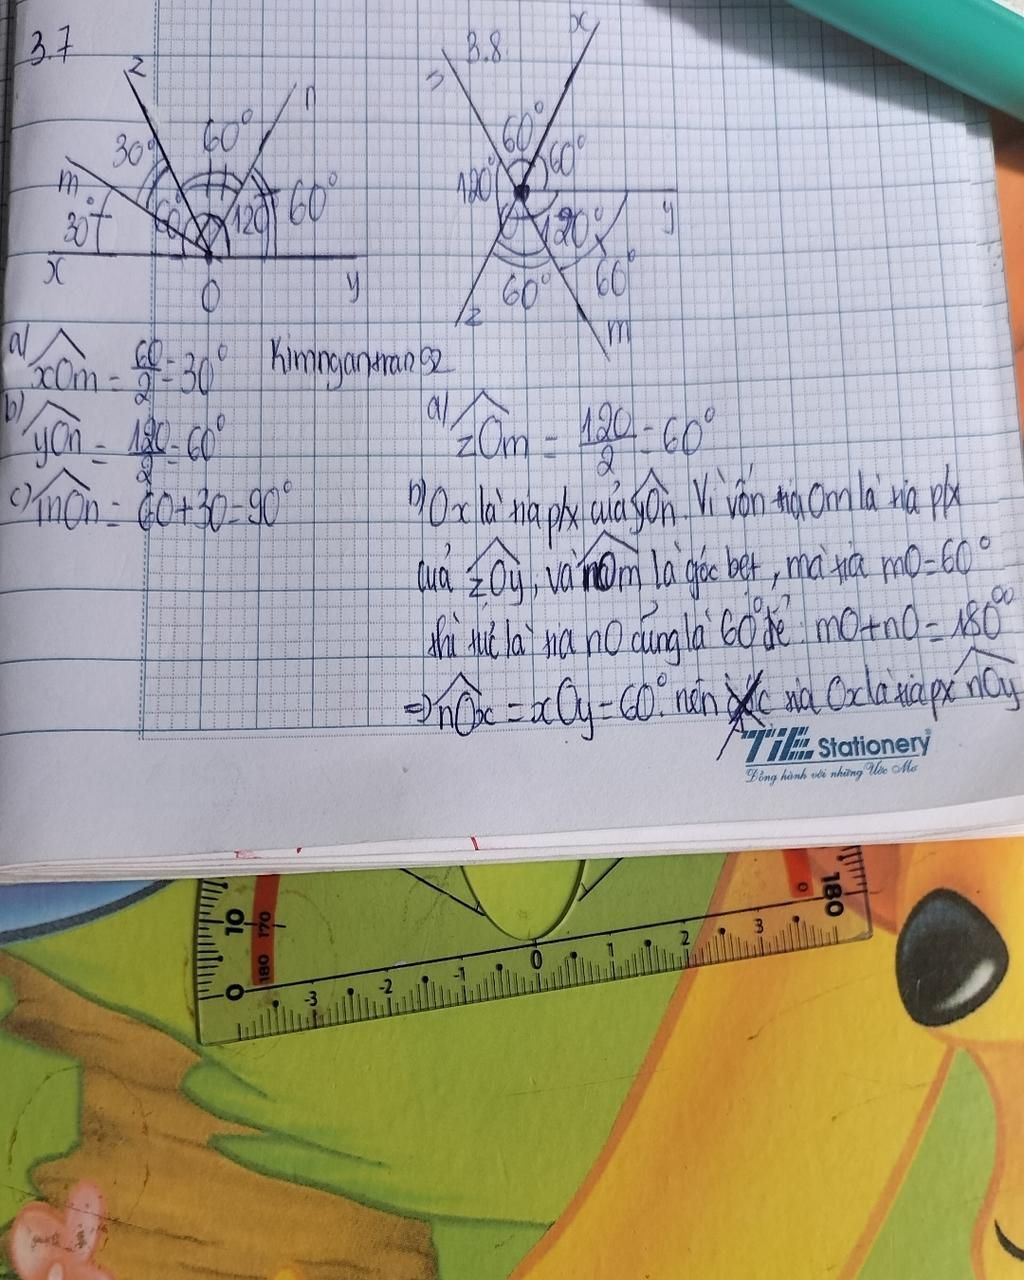 3.7
z
n
60°
30°
m
30°
60°
120°
60°
x
O
y
a) xOm = 60/2 = 30°
Kimngantran92
b) yOn = 120/2 = 60°
c) mOn = 60+30=90°
3.8.
x
n
60°
60°
120°
y
120°
60°
60°
z
m
a) zOm = 120/2 = 60°
b) Ox là tia p/x của yOn. Vì vốn tia Om là tia p/x
của zOy, và nOm là góc bẹt, mà tia mO=60°
thì tức là tia nO cũng là 60° để mO+nO=180°
=> nOx = xOy = 60°. nên tia Ox là tia px nOy
TiE Stationery
Đồng hành với những Ước Mơ
10
170
0
180
-3
-2
-1
0
1
2
3
0
180